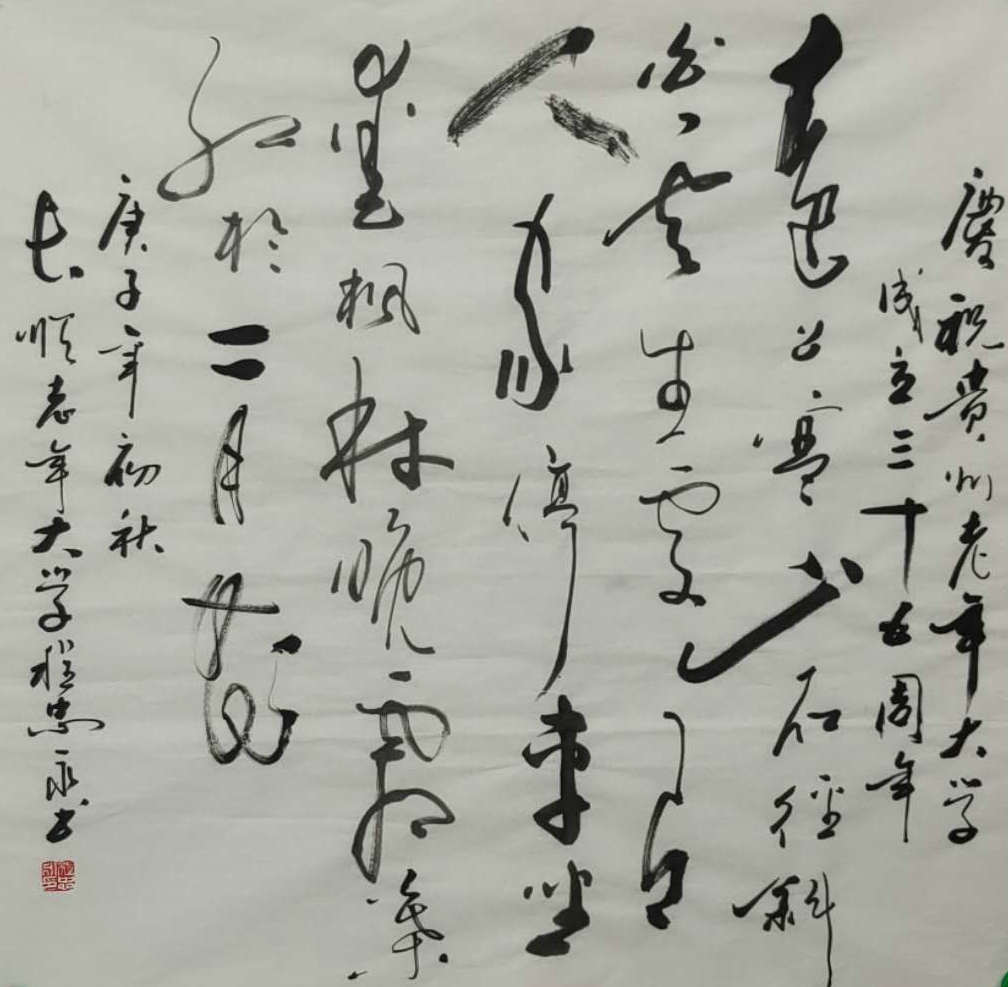 慶祝贵州老年大学
成立三十五周年
遠上寒山石径斜
白云生處有
人家停車坐
愛枫林晚霜葉
红於二月花
庚子年初秋
长顺老年大学程忠永书